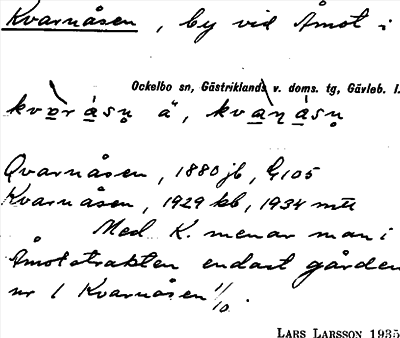 Kvarnåsen, by vid Åmot i
Ockelbo sn, Gästriklands v. doms. tg, Gävleb. l.
Qvarnåsen, 1880 jb, G 105
Kvarnåsen, 1929 kb, 1934 mtl
Med K. menar man i
Åmotstrakten endast gården
nr 1 Kvarnåsen 1/10.
LARS LARSSON 1935